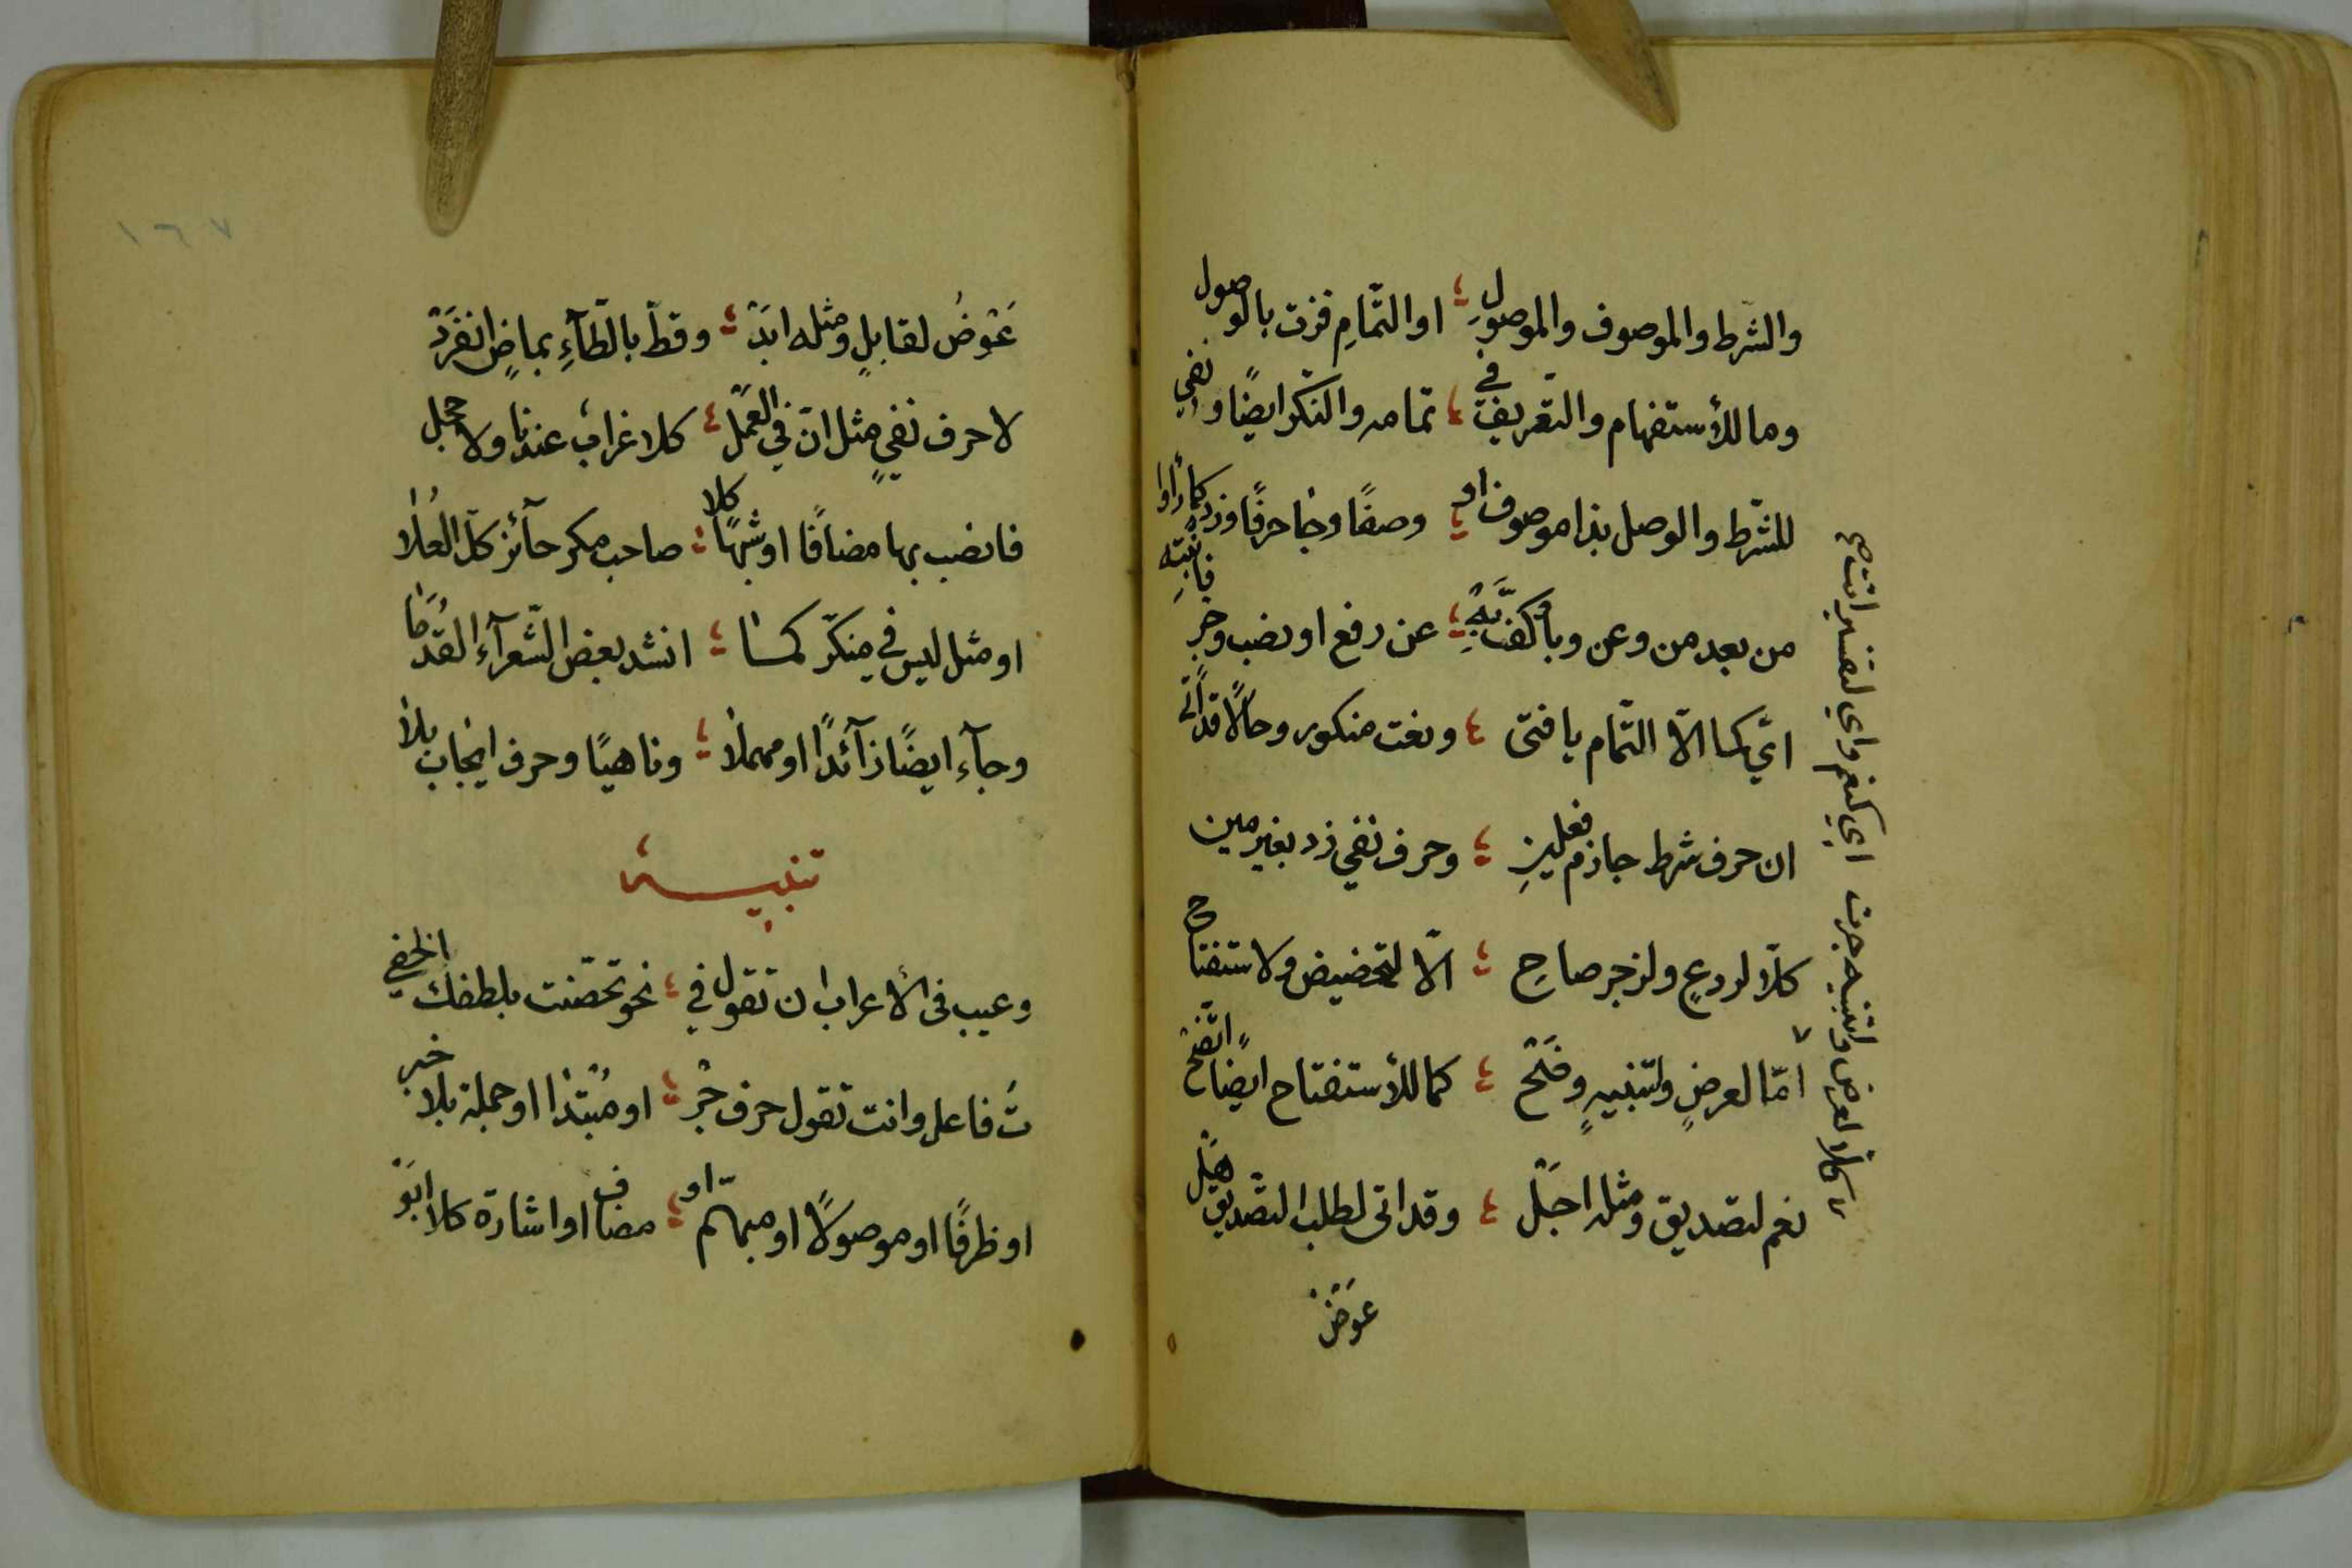 والشرط والموصوف والموصولِ ؛ او التّمامِ فزت بالوصول
وما للأستفهام والتّعريف في ؛ تمامه والنكر ايضًا ونفي
للشّرط والوصل بذا موصوف او ؛ وصفًا وجا حرفًا وزد كما رأوا
من بعد من وعن وبا كفّ بهِ ؛ عن رفع او نصب وجر فانتبه
ايّ كما الّا التّمام يا فتى ؛ ونعت منكور وحالًا قد اتى
ان حرف شرط جازم فعلينِ ؛ وحرف نفي زد بغير مين
كلّا لردعٍ ولزجر صاحِ ؛ الّا لتحضيض ولاستفتاح
امّا لعرضٍ ولتنبيهٍ وضَحْ ؛ كما للأستفتاح ايضًا اتّضح
نعم لتصديق ومثله اجَلْ ؛ وقد اتى لطلب التّصديق هَلْ
عَوضُ
كالّا لعرض ولتنبيه جرت اي كنعم واي لتفسير اتت صح
١٦٧
عَوْضُ لقابلٍ ومثله ابَدْ ؛ وقطّ بالطّآءِ بماضٍ انفَرَدْ
لا حرف نفيٍ مثل انّ في العَمَلْ ؛ كلا غرابٌ عندنا ولا حجل
فانصب بها مضافًا او شبهًا كلا ؛ صاحب مكر حآئز كلّ العُلا
او مثل ليس في منكّر كما ؛ انشد بعض الشّعرآء القُدَما
وجآء ايضًا زآئدًا او مهملا ؛ وناهيًا وحرف ايجاب بلا
تنبيه
وعيب في الأعراب ان تقول في ؛ نحو تحصّنت بلطفك الخفي
تُ فاعل وانت تقول حرف جَرْ ؛ او مُبْتدا او جملة بلا خبر
او ظرفًا او موصولًا او مبهّم او ؛ مضاف او اشارة كلا ابَوْ